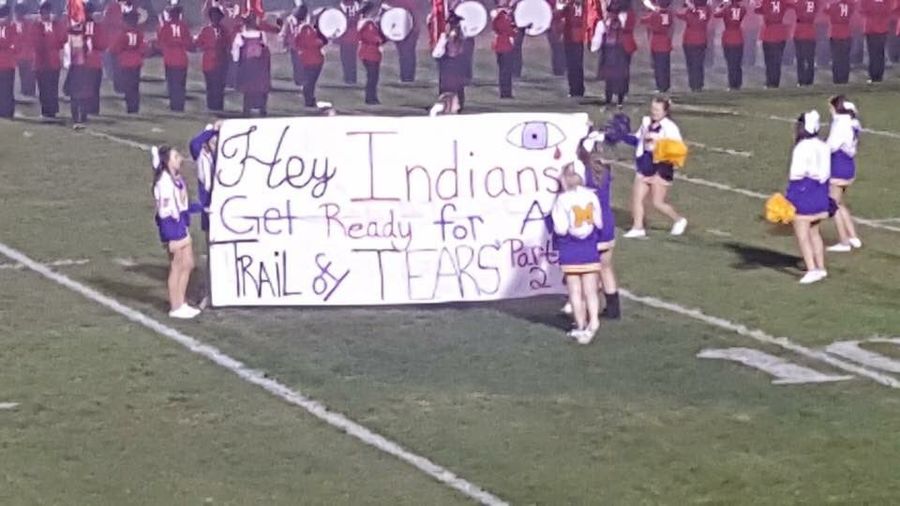 Hey Indians
Get Ready for A
TRAIL of TEARS Part
2
M